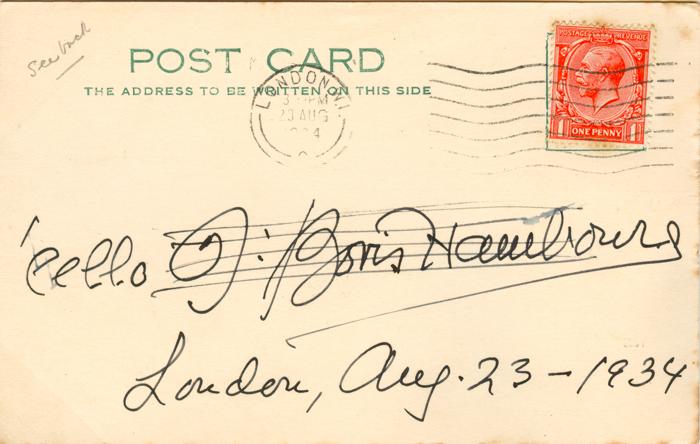 see back
POST CARD
THE ADDRESS TO BE WRITTEN ON THIS SIDE
LONDON.W.1.
PM
23 AUG
POSTAGE REVENUE
ONE PENNY
'cello Boris Hambourg
London, Aug. 23 - 1934